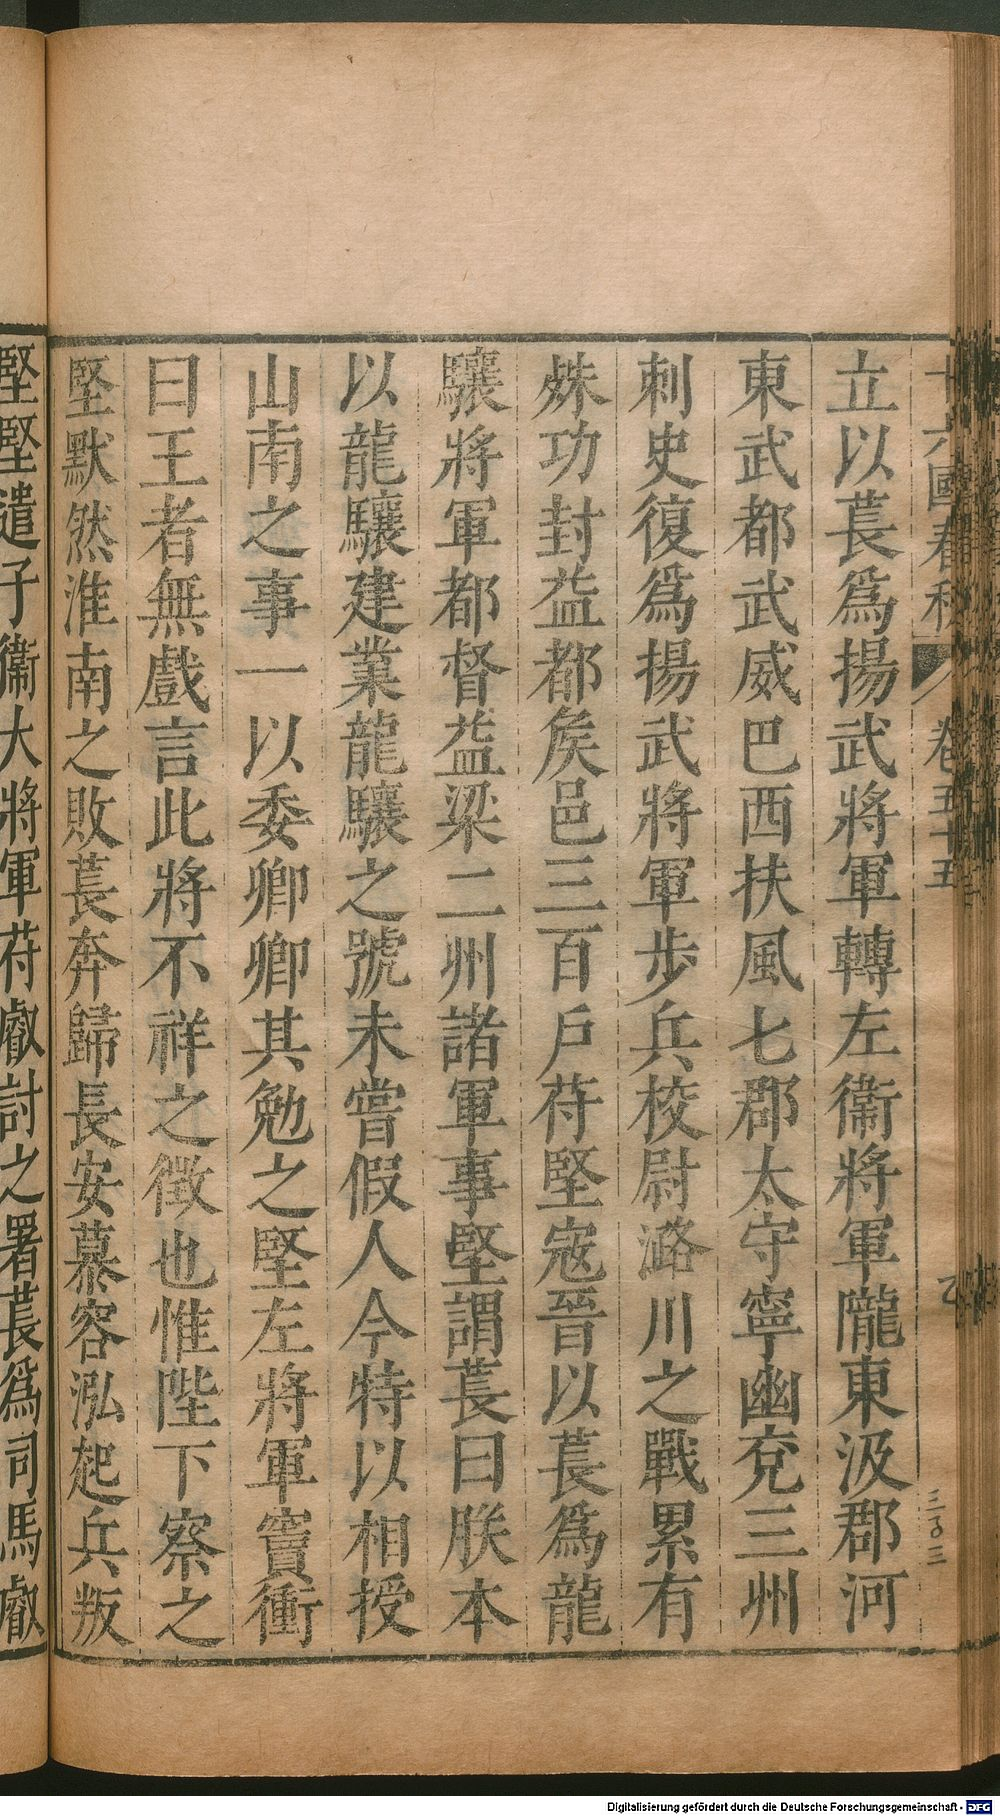 十六國春秋 卷五十五
立以萇爲揚武將軍轉左衞將軍隴東汲郡河
東武都武威巴西扶風七郡太守寧幽兗三州
刺史復爲揚武將軍步兵校尉潞川之戰累有
殊功封益都矦邑三百戶苻堅寇晉以萇爲龍
驤將軍都督益梁二州諸軍事堅謂萇曰朕本
以龍驤建業龍驤之號未嘗假人今特以相授
山南之事一以委卿卿其勉之堅左將軍竇衝
曰王者無戲言此將不祥之徵也惟陛下察之
堅默然淮南之敗萇奔歸長安慕容泓起兵叛
堅堅遣子衞大將軍苻叡討之署萇爲司馬叡
Digitalisierung gefördert durch die Deutsche Forschungsgemeinschaft - DFG